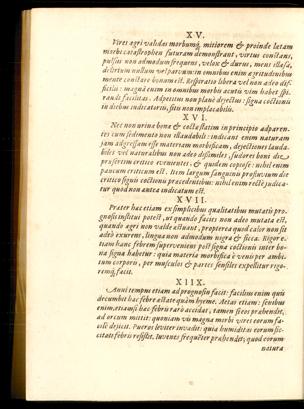 XV.
Vires ægri validas morbumq́, mitiorem & proinde lætam
morbi catastrophen futuram demonstrant, virtus constans,
pulsus non admodum frequens, velox & durus, mens illæsa,
delirium nullum vel parvum: in omnibus enim ægritudinibus
mente constare bonum est. Respiratio libera vel non adeo dif-
ficilis: magná enim in omnibus morbis acutis vim habet spi-
randi facilitas. Appetitus non planè dejectus: signa coctionis
in diebus indicatoriis, sitis non implacabilis.
XVI.
Nec non urina bona & recta statim in principio adparen-
tes cum sedimento non illaudabili: indicant enim naturam
jam adgressam esse materiam morbificam, dejectiones lauda-
biles vel naturalibus non adeo dissimiles, sudores boni die
præsertim critico erumpentes: & quidem copiose: nihil enim
paucum criticum est. Item largum sanguinis profluvium die
critico signis coctionis præcedentibus: nihil enim rectè judica-
tur quod non antea indicatum est.
XVII.
Prater hac etiam ex simplicibus qualitatibus mutatis pro-
gnosis institui potest, ut quando facies non adeo mutata est,
quando ægri non valde æstuant, præterea quod calor non sit
adeò exurens, lingua non admodum nigra & sicca. Rigor e-
tiam hanc febrem superveniens post signa coctionis inter bo-
na signa habetur: quia materia morbifica è venis per ambi-
tum corporis, per musculos & partes sensiles expellitur rigo-
remq́; facit.
XIIX.
Anni tempus etiam ad prognosin facit: facilius enim quis
decumbit hac febre æstate quàm hyeme. Aetas etiam: senibus
enim, etiamsi hac febris rarò accidat, tamen si eos prehendit,
ad orcum mittit: quoniam vis magna morbi vires eorum fa-
cilè dejicit. Pueros leviter invadit: quia humiditas eorum sic-
citati febris resistit. Iuvenes frequẽter prahendit; quod eorum
natura